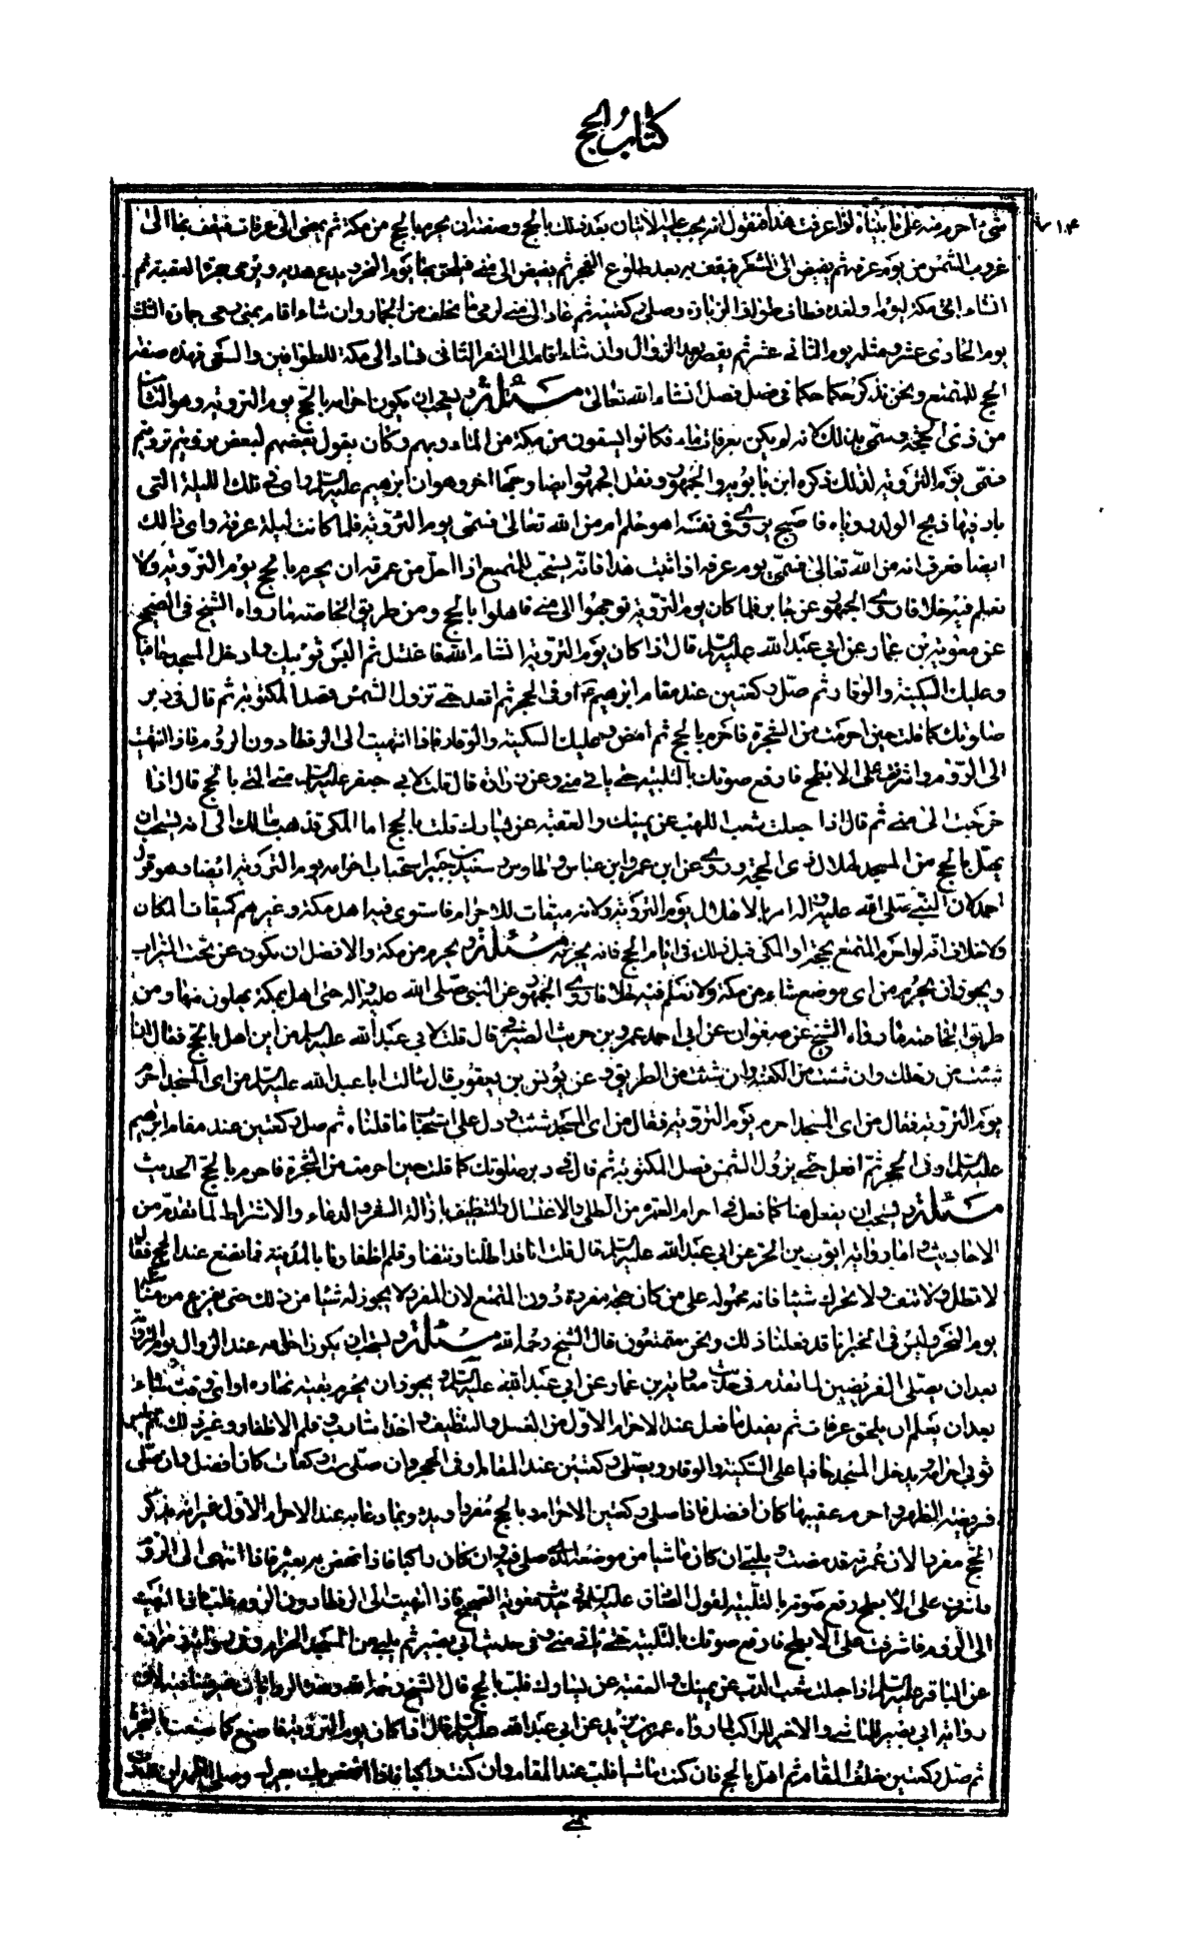 كتاب الحج
٧١۴
شىء احرم منه على ما بيناه اذا عرفت هذا فنقول انه يجب عليه الاتيان بعد ذلك بالحج وصفته ان يحرم بالحج من مكة ثم يمضى الى عرفات فيقف بها الى
غروب الشمس من يوم عرفه ثم يفيض الى المشعر فيقف به بعد طلوع الفجر ثم يفيض الى منى فيحلق بها يوم النحر ويذبح هديه ويرمى جمرة العقبة ثم
انشاء اتى مكة ليومه او لغده فطاف طواف الزيارة وصلى ركعتيه ثم عاد الى منى لرمى ما تخلف من الجمار وان شاء اقام بمنى حتى يرمى جماره الثلث
يوم الحادى عشر ومثله يوم الثانى عشر ثم ينفر بعد الزوال وان شاء اقام الى النفر الثانى فعاد الى مكة للطوافين والسعى فهذه صفة
الحج للمتمتع ونحن نذكر حكما حكما فى فصل فصل انشاء الله تعالى مسئلة ويستحب ان يكون احرامه بالحج يوم التروية وهو الثامن
من ذى الحجة وسمى بذلك لانه لم يكن بعرفات ماء فكانوا يسقون من مكة من الماء ريهم وكان يقول بعضهم لبعض ترويتم ترويتم
فسمى يوم التروية لذلك ذكره ابن بابويه والجمهور ونقل الجمهور ايضا وجها اخر وهو ان ابرهيم عليه السلم راى فى تلك الليلة التى
راى فيها ذبح الولد رؤياه فاصبح يروى فى نفسه اهو حلم ام من الله تعالى فسمى يوم التروية فلما كانت ليلة عرفة راى ذلك
ايضا فعرف انه من الله تعالى فسمى يوم عرفه اذا ثبت هذا فانه يستحب للمتمتع اذا احل من عمرته ان يحرم بالحج يوم التروية ولا
نعلم فيه خلافا روى الجمهور عن جابر فلما كان يوم التروية توجهوا الى منى فاهلوا بالحج ومن طريق الخاصة ما رواه الشيخ فى الصحيح
عن معوية بن عمار عن ابى عبد الله عليه السلم قال اذا كان يوم التروية انشاء الله فاغتسل ثم البس ثوبيك وادخل المسجد حافيا
وعليك السكينة والوقار ثم صل ركعتين عند مقام ابرهيم او فى الحجر ثم اقعد حتى تزول الشمس فصل المكتوبة ثم قل فى دبر
صلوتك كما قلت حين احرمت من الشجرة فاحرم بالحج ثم امض وعليك السكينة والوقار فاذا انتهيت الى الرفطاء دون الردم فلب فاذا انتهيت
الى الردم واشرفت على الابطح فارفع صوتك بالتلبية حتى ياتى منى وعن زرارة قال قلت لابى جعفر عليه السلم متى البى بالحج قال اذا
خرجت الى منى ثم قال اذا جعلت شعب الدب عن يمينك والعقبة عن يسارك قلت بالحج اما المكى فذهب مالك الى انه يستحب ان
يهل بالحج من المسجد لهلال ذى الحجة وروى عن ابن عمر وابن عباس وطاوس وسعيد بن جبير استحباب احرامه يوم التروية ايضا وهو قول
احمد لان النبى صلى الله عليه واله امر بالاهلال يوم التروية ولانه ميقات للاحرام فاستوى فيه اهل مكة وغيرهم كميقات المكان
ولا خلاف انه لو احرم المتمتع بحجه او المكى قبل ذلك فى ايام الحج فانه يجزيه مسئلة ويحرم من مكة والافضل ان يكون عن تحت الميزاب
ويجوز ان يحرم من اى موضع شاء من مكة ولا نعلم فيه خلافا روى الجمهور عن النبى صلى الله عليه واله حتى اهل مكة يهلون منها ومن
طريق الخاصة ما رواه الشيخ عن صفوان عن ابى احمد عمرو بن حريث الصيرفى قال قلت لابى عبد الله عليه السلم من اين اهل بالحج فقال ان
شئت من رحلك وان شئت من الكعبة وان شئت من الطريق وعن يونس بن يعقوب قال سالت ابا عبد الله عليه السلم من اى المسجد احرم
يوم التروية فقال من اى المسجد احرم يوم التروية فقال من اى المسجد شئت ودل على استحباب ما قلناه ثم صل ركعتين عند مقام ابرهيم
عليه السلم او فى الحجر ثم اقعد حتى يزول الشمس فصل المكتوبة ثم قل فى دبر صلوتك كما قلت حين احرمت من الشجرة فاحرم بالحج الحديث
مسئلة ويستحب ان يفعل هنا كما فعل فى احرام العمرة من الطلى والاغتسال والتنظيف بازالة الشعر والدعاء والاشتراط لما تقدم من
الاحاديث واما رواية ايوب بن الحر عن ابى عبد الله عليه السلم قال قلت انا قد اطلينا ونتفنا وقلمنا اظفارنا بالمدينة فما نصنع عند الحج فقال
لا تطل ولا تنتف ولا تحرك شيئا فانه محمولة على من كان حجه مفردة دون المتمتع لان المفرد لا يجوز له شيئا من ذلك حتى يفرغ من مناسكه
يوم النحر وليس فى الخبر انا قد فعلنا ذلك ونحن متمتعون قال الشيخ رحمه الله مسئلة ويستحب ان يكون احرامه عند الزوال يوم التروية
بعد ان يصلى الفريضين لما تقدم فى حديث معاوية بن عمار عن ابى عبد الله عليه السلم ويجوز ان يحرم بقية نهاره او اى وقت شاء
بعد ان يعلم ان يلحق عرفات ثم يفعل ما فعل عند الاحرام الاول من الغسل والتنظيف واخذ الشارب وقلم الاظفار وغير ذلك ثم يلبس
ثوبى احرامه ويدخل المسجد حافيا على السكينة والوقار ويصلى ركعتين عند المقام او فى الحجر وان صلى ست ركعات كان افضل وان صلى
فريضة الظهر واحرم عقيبها كان افضل فاذا صلى ركعتين الاحرام بالحج مفردا ويدعو بما دعا به عند الاحرام الاول غير انه يذكر
الحج مفردا لان عمرته قد مضت ويلبى ان كان ماشيا من موضعه الذى صلى فيه وان كان راكبا فاذا نهض به بعيره فاذا انتهى الى الردم
واشرف على الابطح رفع صوته بالتلبية لقول الصادق عليه السلم فى حديث معوية الصحيح فاذا انتهيت الى الرفطاء دون الردم فلب فاذا انتهيت
الى الردم فاشرفت على الابطح فارفع صوتك بالتلبية حتى تاتى منى وفى حديث ابى بصير ثم يلبى من المسجد الحرام وفى رواية زرارة
عن الباقر عليه السلم اذا جعلت شعب الدب عن يمينك والعقبة عن يسارك فلب بالحج قال الشيخ رحمه الله
رواية ابى بصير للماشى والاخير للراكب لما رواه عمر بن يزيد عن ابى عبد الله عليه السلم قال اذا كان يوم التروية فاصنع كما صنعت بالشجرة
ثم صل ركعتين خلف المقام ثم اهل بالحج فان كنت ماشيا فلب عند المقام وان كنت راكبا فاذا نهض بك بعيرك وصلى الظهر ان قدرت
بمنى